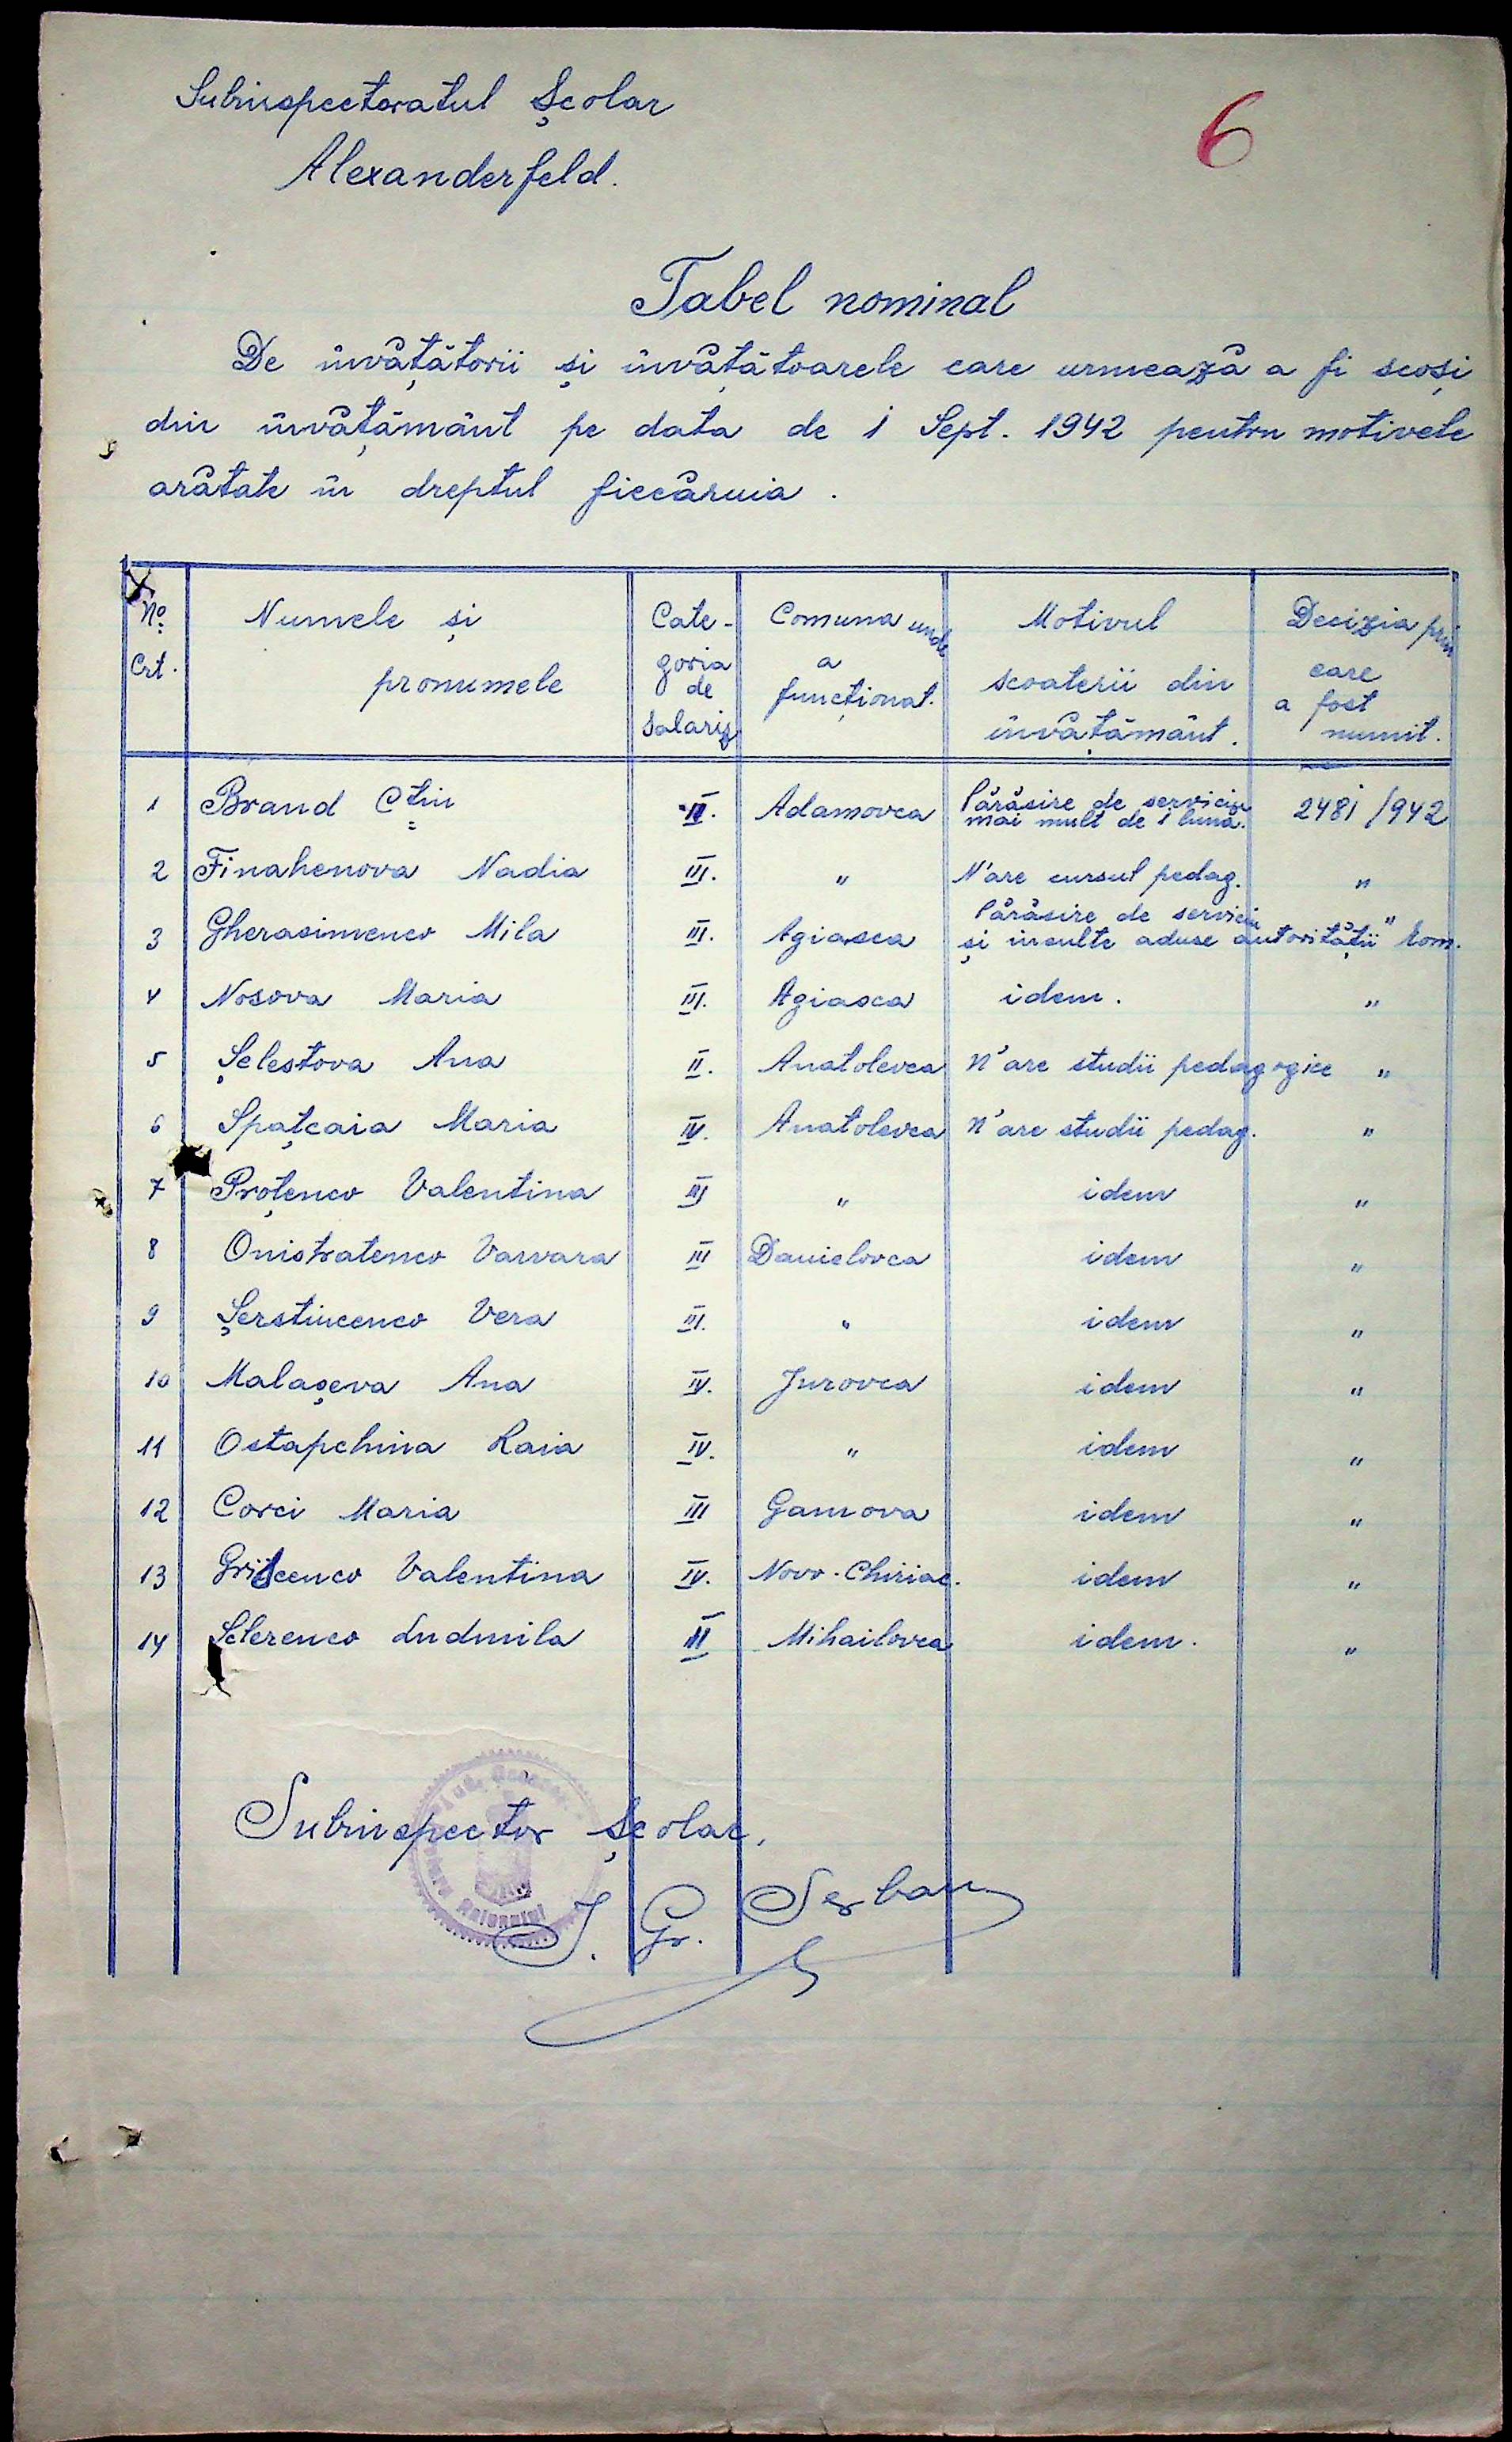 Subinspectoratul Școlar
6
Alexanderfeld.
Tabel nominal
De învățătorii și învățătoarele care urmează a fi scoși
din învățământ pe data de 1 Sept. 1942 pentru motivele
arătate în dreptul fiecăruia.
No. Crt. Numele și pronumele Categoria de salariz Comuna unde a funcționat. Motivul scoaterii din învățământ. Decizia prin care a fost numit.
1 Brand Ctin II. Adamovca Părăsire de serviciu mai mult de 1 lună. 2481/942
2 Finahenova Nadia III. " N'are cursul pedag. "
3 Gherasimenco Mila III. Agiasca Părăsire de serviciu și insulte aduse autorității Rom. "
4 Nosova Maria III. Agiasca idem. "
5 Șelestova Ana II. Anatolevca N'are studii pedagogice "
6 Spațcaia Maria IV. Anatolevca N'are studii pedag. "
7 Proțenco Valentina III " idem "
8 Onistratenco Varvara III Danielovca idem "
9 Șerstincenco Vera III. " idem "
10 Malașeva Ana IV. Jurovca idem "
11 Ostapchina Raia IV. " idem "
12 Corci Maria III Gamova idem "
13 Valentina IV. Novo-Chiriac. idem "
14 Sclerenco Ludmila III Mihailovca idem. "
Subinspector Școlar,
I. Gr. Serban